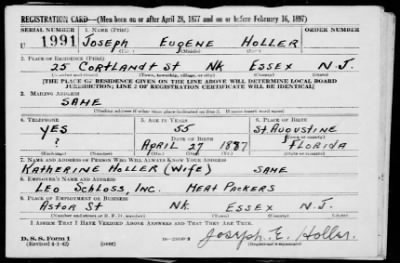 REGISTRATION CARD—(Men born on or after April 28, 1877 and on or before February 16, 1897)
SERIAL NUMBER 1. NAME (Print) ORDER NUMBER
U 1991 JOSEPH EUGENE HOLLER
(First) (Middle) (Last)
2. PLACE OF RESIDENCE (Print)
25 CORTLANDT ST NK ESSEX N.J.
(Number and street) (Town, township, village, or city) (County) (State)
[THE PLACE OF RESIDENCE GIVEN ON THE LINE ABOVE WILL DETERMINE LOCAL BOARD
JURISDICTION; LINE 2 OF REGISTRATION CERTIFICATE WILL BE IDENTICAL]
3. MAILING ADDRESS
SAME
[Mailing address if other than place indicated on line 2. If same insert word same]
4. TELEPHONE 5. AGE IN YEARS 6. PLACE OF BIRTH
YES 55 ST. AUGUSTINE
DATE OF BIRTH (Town or county)
? APRIL 27 1887 FLORIDA
(Exchange) (Number) (Mo.) (Day) (Yr.) (State or country)
7. NAME AND ADDRESS OF PERSON WHO WILL ALWAYS KNOW YOUR ADDRESS
KATHERINE HOLLER (WIFE) SAME
8. EMPLOYER'S NAME AND ADDRESS
LEO SCHLOSS, INC. MEAT PACKERS
9. PLACE OF EMPLOYMENT OR BUSINESS
ASTOR ST NK ESSEX N.J.
(Number and street or R. F. D. number) (Town) (County) (State)
I AFFIRM THAT I HAVE VERIFIED ABOVE ANSWERS AND THAT THEY ARE TRUE.
D. S. S. Form 1
(Revised 4-1-42) (over)
Joseph E. Holler